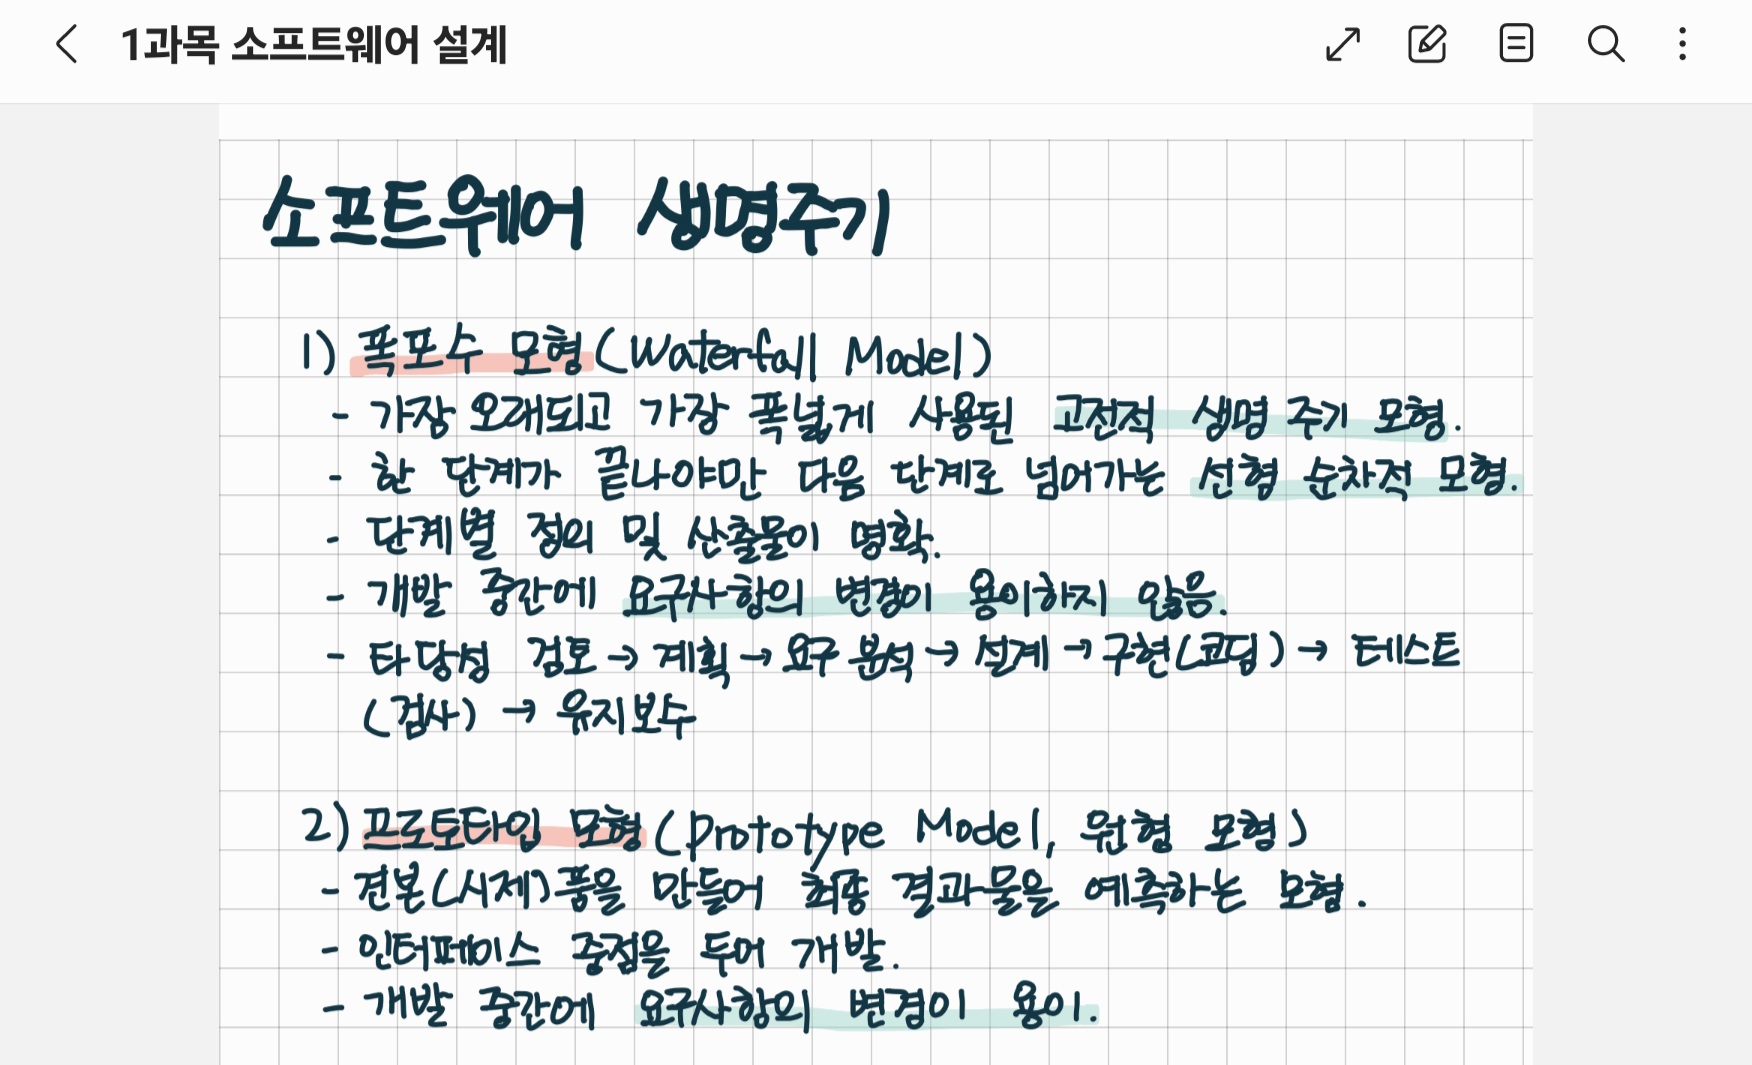 1과목 소프트웨어 설계
소프트웨어 생명주기
1) 폭포수 모형(Waterfall Model)
- 가장 오래되고 가장 폭넓게 사용된 고전적 생명 주기 모형.
- 한 단계가 끝나야만 다음 단계로 넘어가는 선형 순차적 모형.
- 단계별 정의 및 산출물이 명확.
- 개발 중간에 요구사항의 변경이 용이하지 않음.
- 타당성 검토 → 계획 → 요구 분석 → 설계 → 구현(코딩) → 테스트
(검사) → 유지보수
2) 프로토타입 모형(Prototype Model, 원형 모형)
- 견본(시제)품을 만들어 최종 결과물을 예측하는 모형.
- 인터페이스 중점을 두어 개발.
- 개발 중간에 요구사항의 변경이 용이.